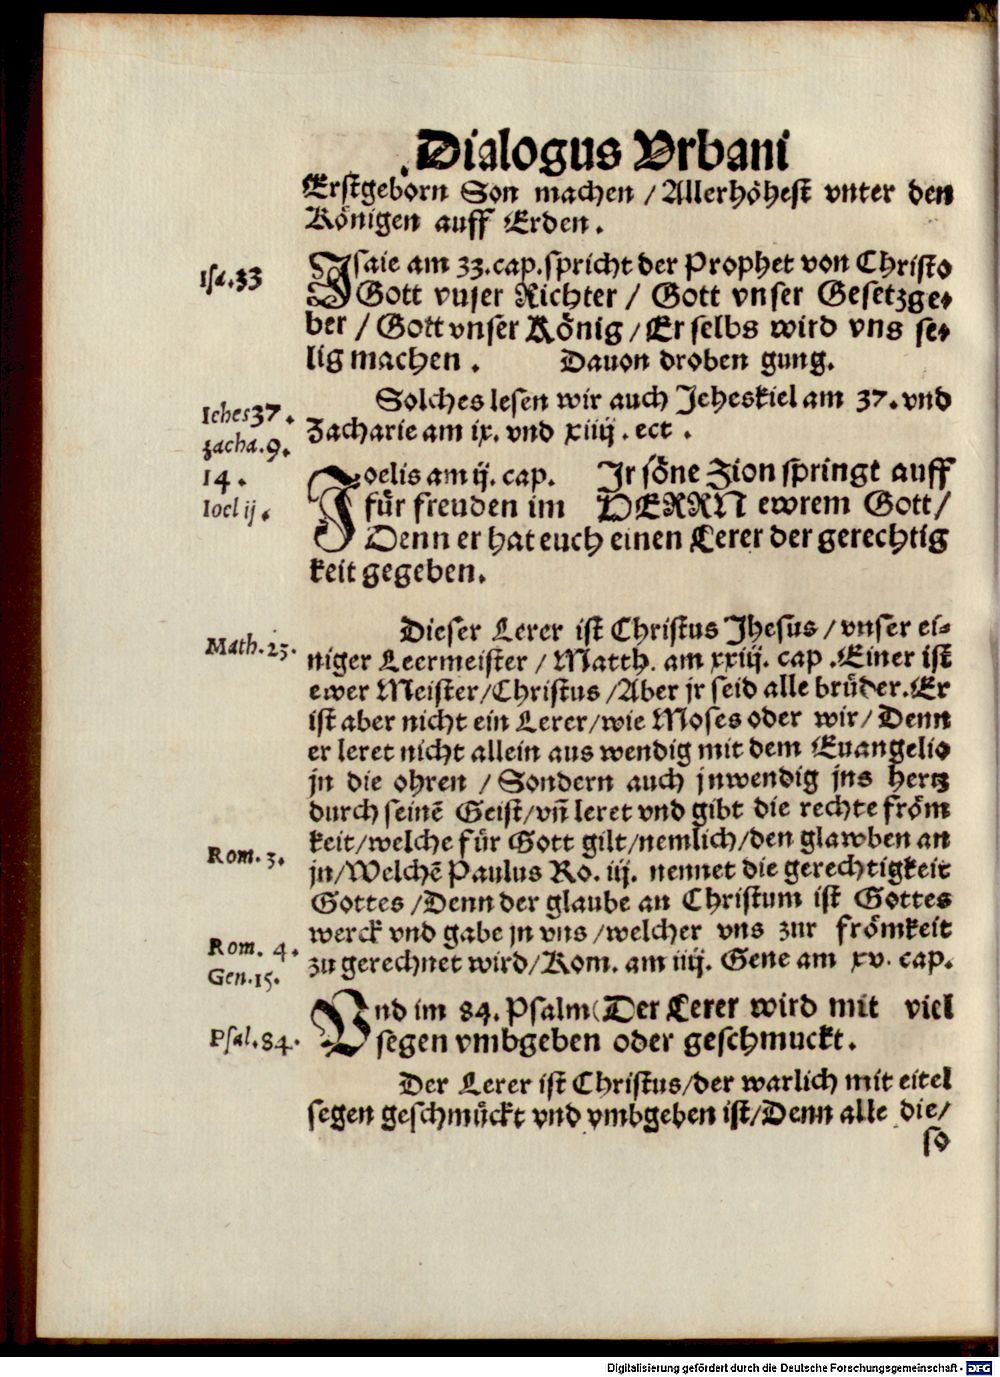 Dialogus Vrbani
Erstgeborn Son machen / Allerhöhest vnter den
Königen auff Erden.
Isa.33
Jsaie am 33.cap.spricht der Prophet von Christo
Gott vnser Richter / Gott vnser Gesetzge-
ber / Gott vnser König / Er selbs wird vns se-
lig machen. Dauon droben gung.
Solches lesen wir auch Jeheskiel am 37. vnd
Iches 37.
Zacharie am ix. vnd xiiij. ect.
zacha.9.
14.
Joelis am ij. cap. Jr söne Zion springt auff
Ioel ij.
für freuden im HERRN ewrem Gott /
Denn er hat euch einen Lerer der gerechtig
keit gegeben.
Dieser Lerer ist Christus Jhesus / vnser ei-
Math.23.
niger Leermeister / Matth. am xxiij. cap. Einer ist
ewer Meister/Christus /Aber jr seid alle brüder. Er
ist aber nicht ein Lerer/wie Moses oder wir/Denn
er leret nicht allein aus wendig mit dem Euangelio
jn die ohren / Sondern auch jnwendig jns hertz
durch seinē Geist/vñ leret vnd gibt die rechte fröm
keit/welche für Gott gilt/nemlich/den glawben an
Rom.3.
jn/Welchē Paulus Ro. iij. nennet die gerechtigkeit
Gottes /Denn der glaube an Christum ist Gottes
werck vnd gabe jn vns /welcher vns zur frömkeit
Rom. 4.
zu gerechnet wird/Rom. am iiij. Gene am xv. cap.
Gen.15.
Vnd im 84. Psalm (Der Lerer wird mit viel
Psal.84.
segen vmbgeben oder geschmuckt.
Der Lerer ist Christus/der warlich mit eitel
segen geschmückt vnd vmbgeben ist/Denn alle die/
so
Digitalisierung gefördert durch die Deutsche Forschungsgemeinschaft - DFG